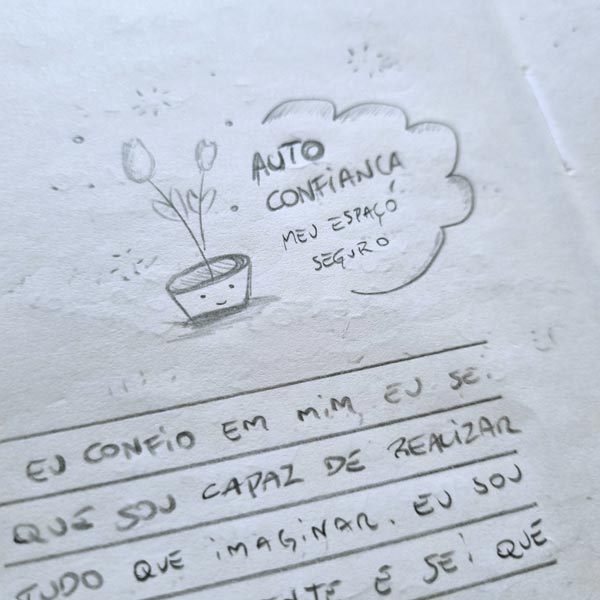 AUTO
CONFIANCA
MEU ESPAÇÓ
SEGURO
EU CONFIO EM MIM, EU SEI
QUE SOU CAPAZ DE REALIZAR
TUDO QUE IMAGINAR. EU SOU
E SEI QUE